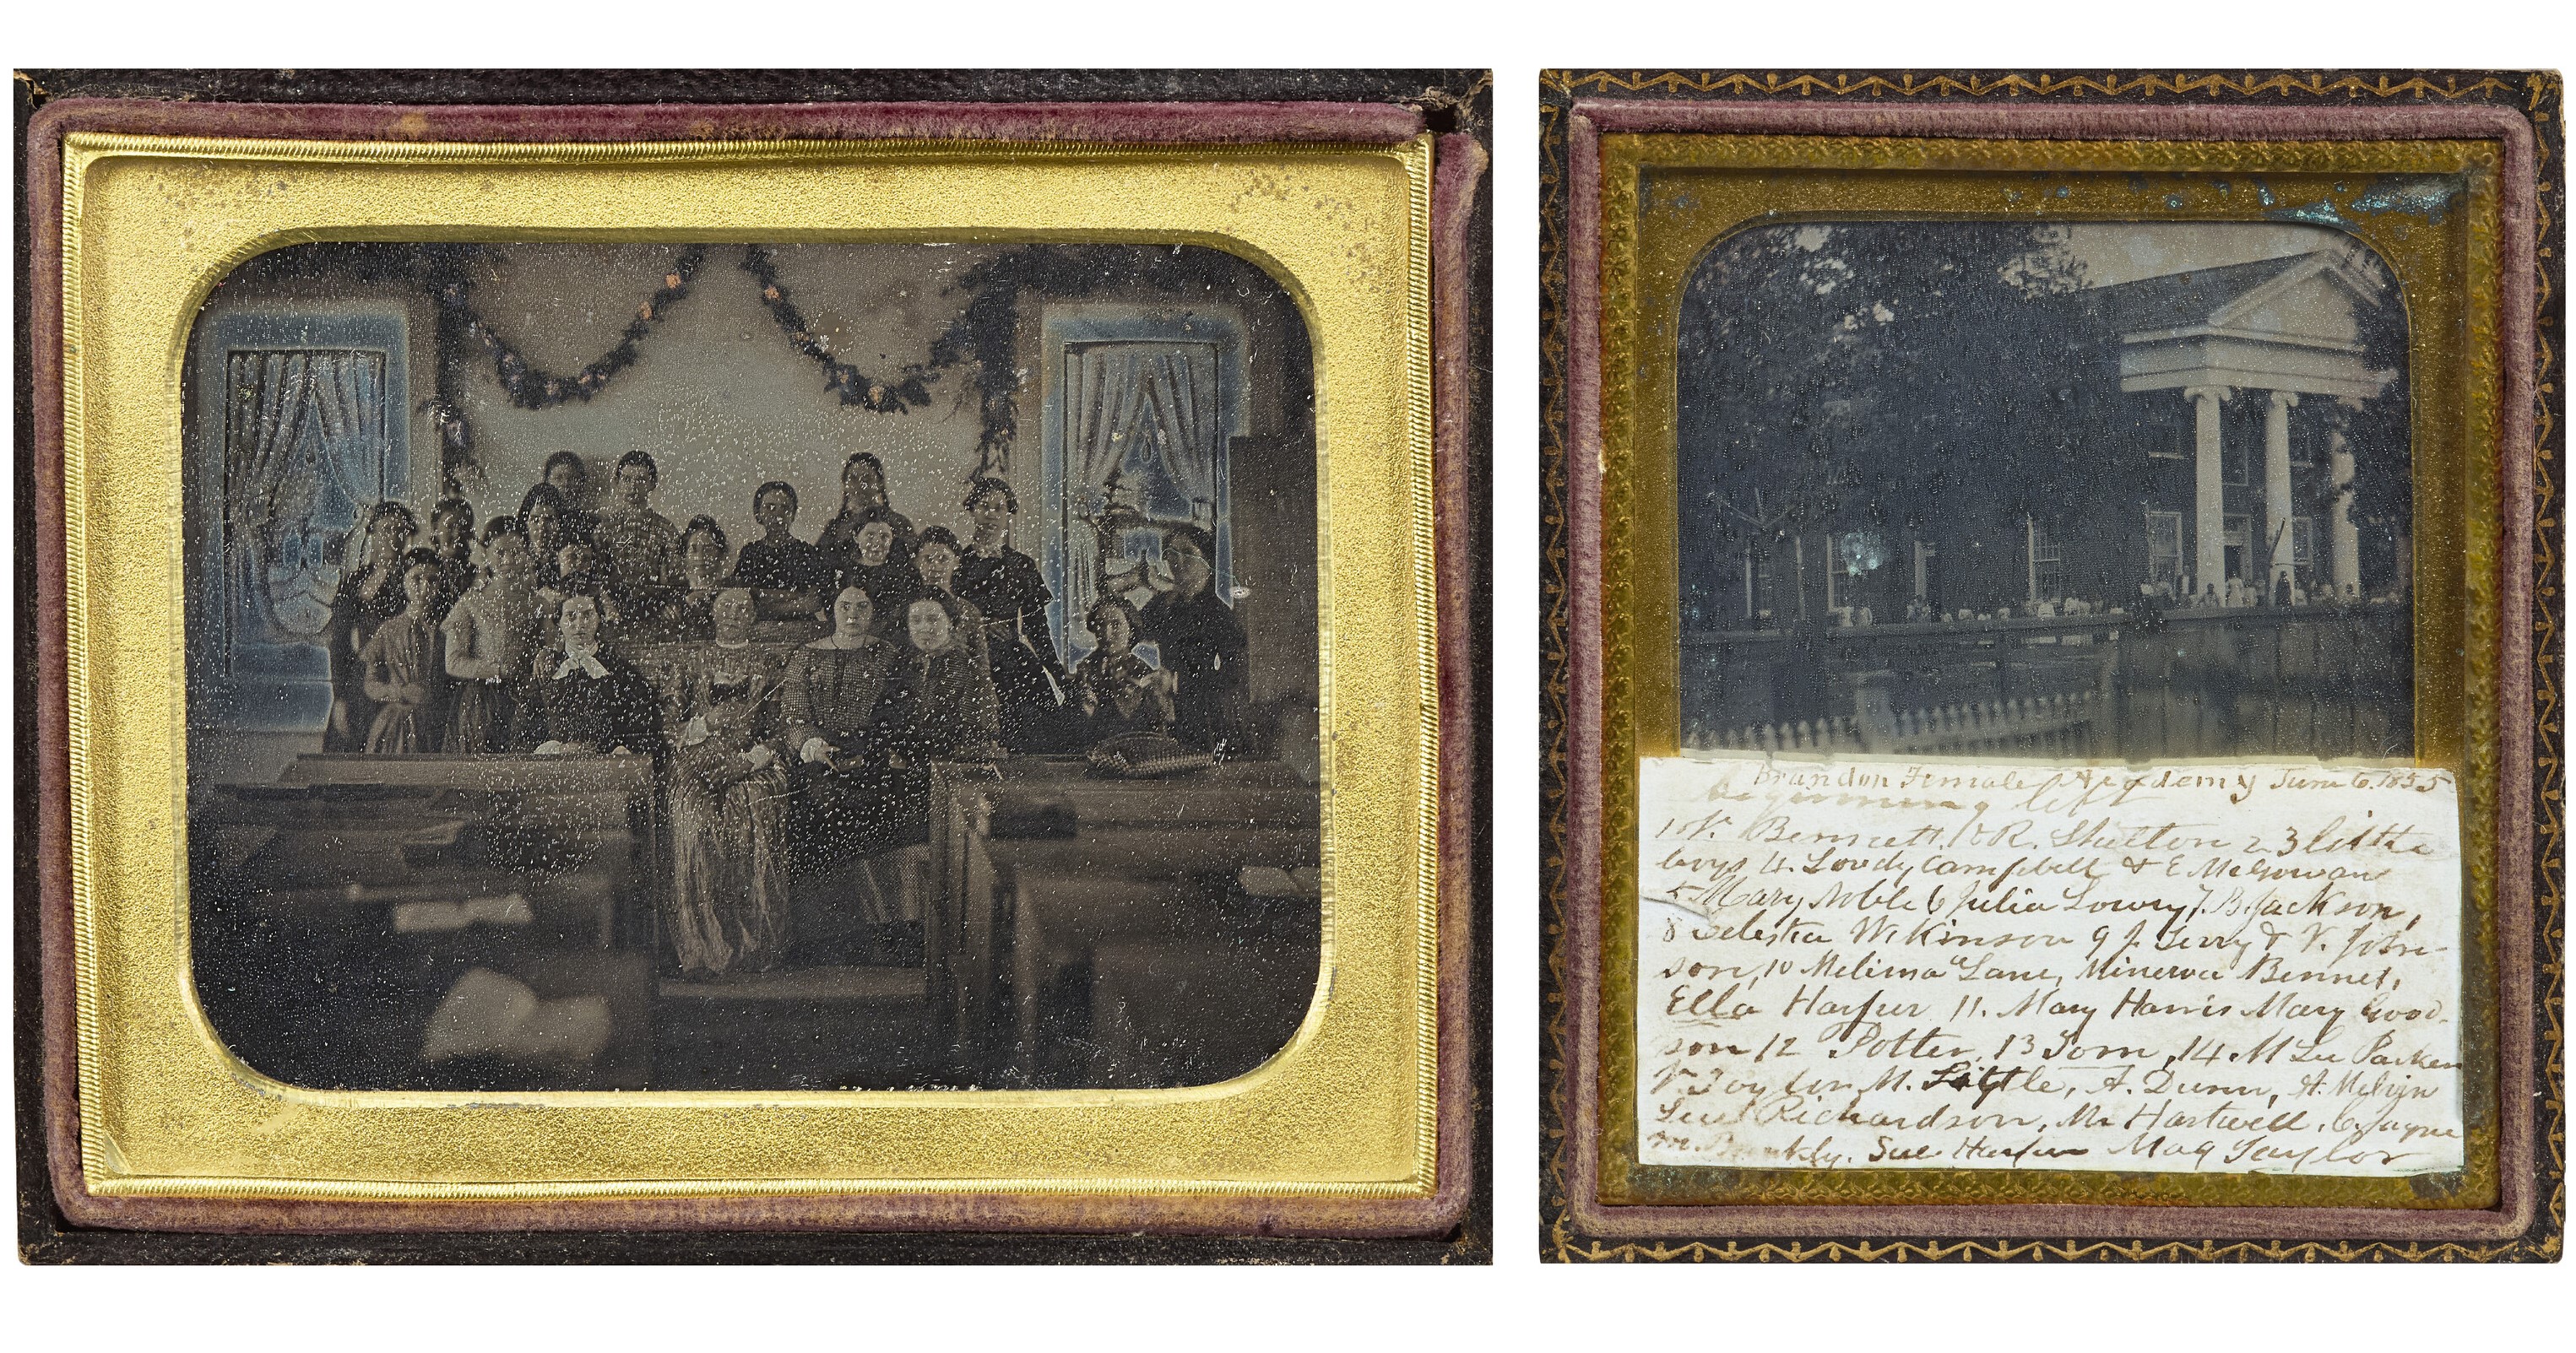 Brandon Female Academy June 6. 1855
beginning left
1 V. Bennett. & R. Shelton 2 3 little
boys 4. Loody Campbell & E McGowan
5 Mary Noble 6 Julia Lowry 7. B. Jackson,
8 Celestia Wilkinson 9 J. Terry & V. John-
son, 10 Melissa Lane, Minerva Bennet,
Ella Harper 11. Mary Harris Mary Good-
son 12 Potter. 13 Tom, 14. M Lu Parker
M. Little, A. Dunn, H. Melvin
Sue Richardson, Mr Hartwell. C. Jayne
M. Sue Harper Mag Taylor